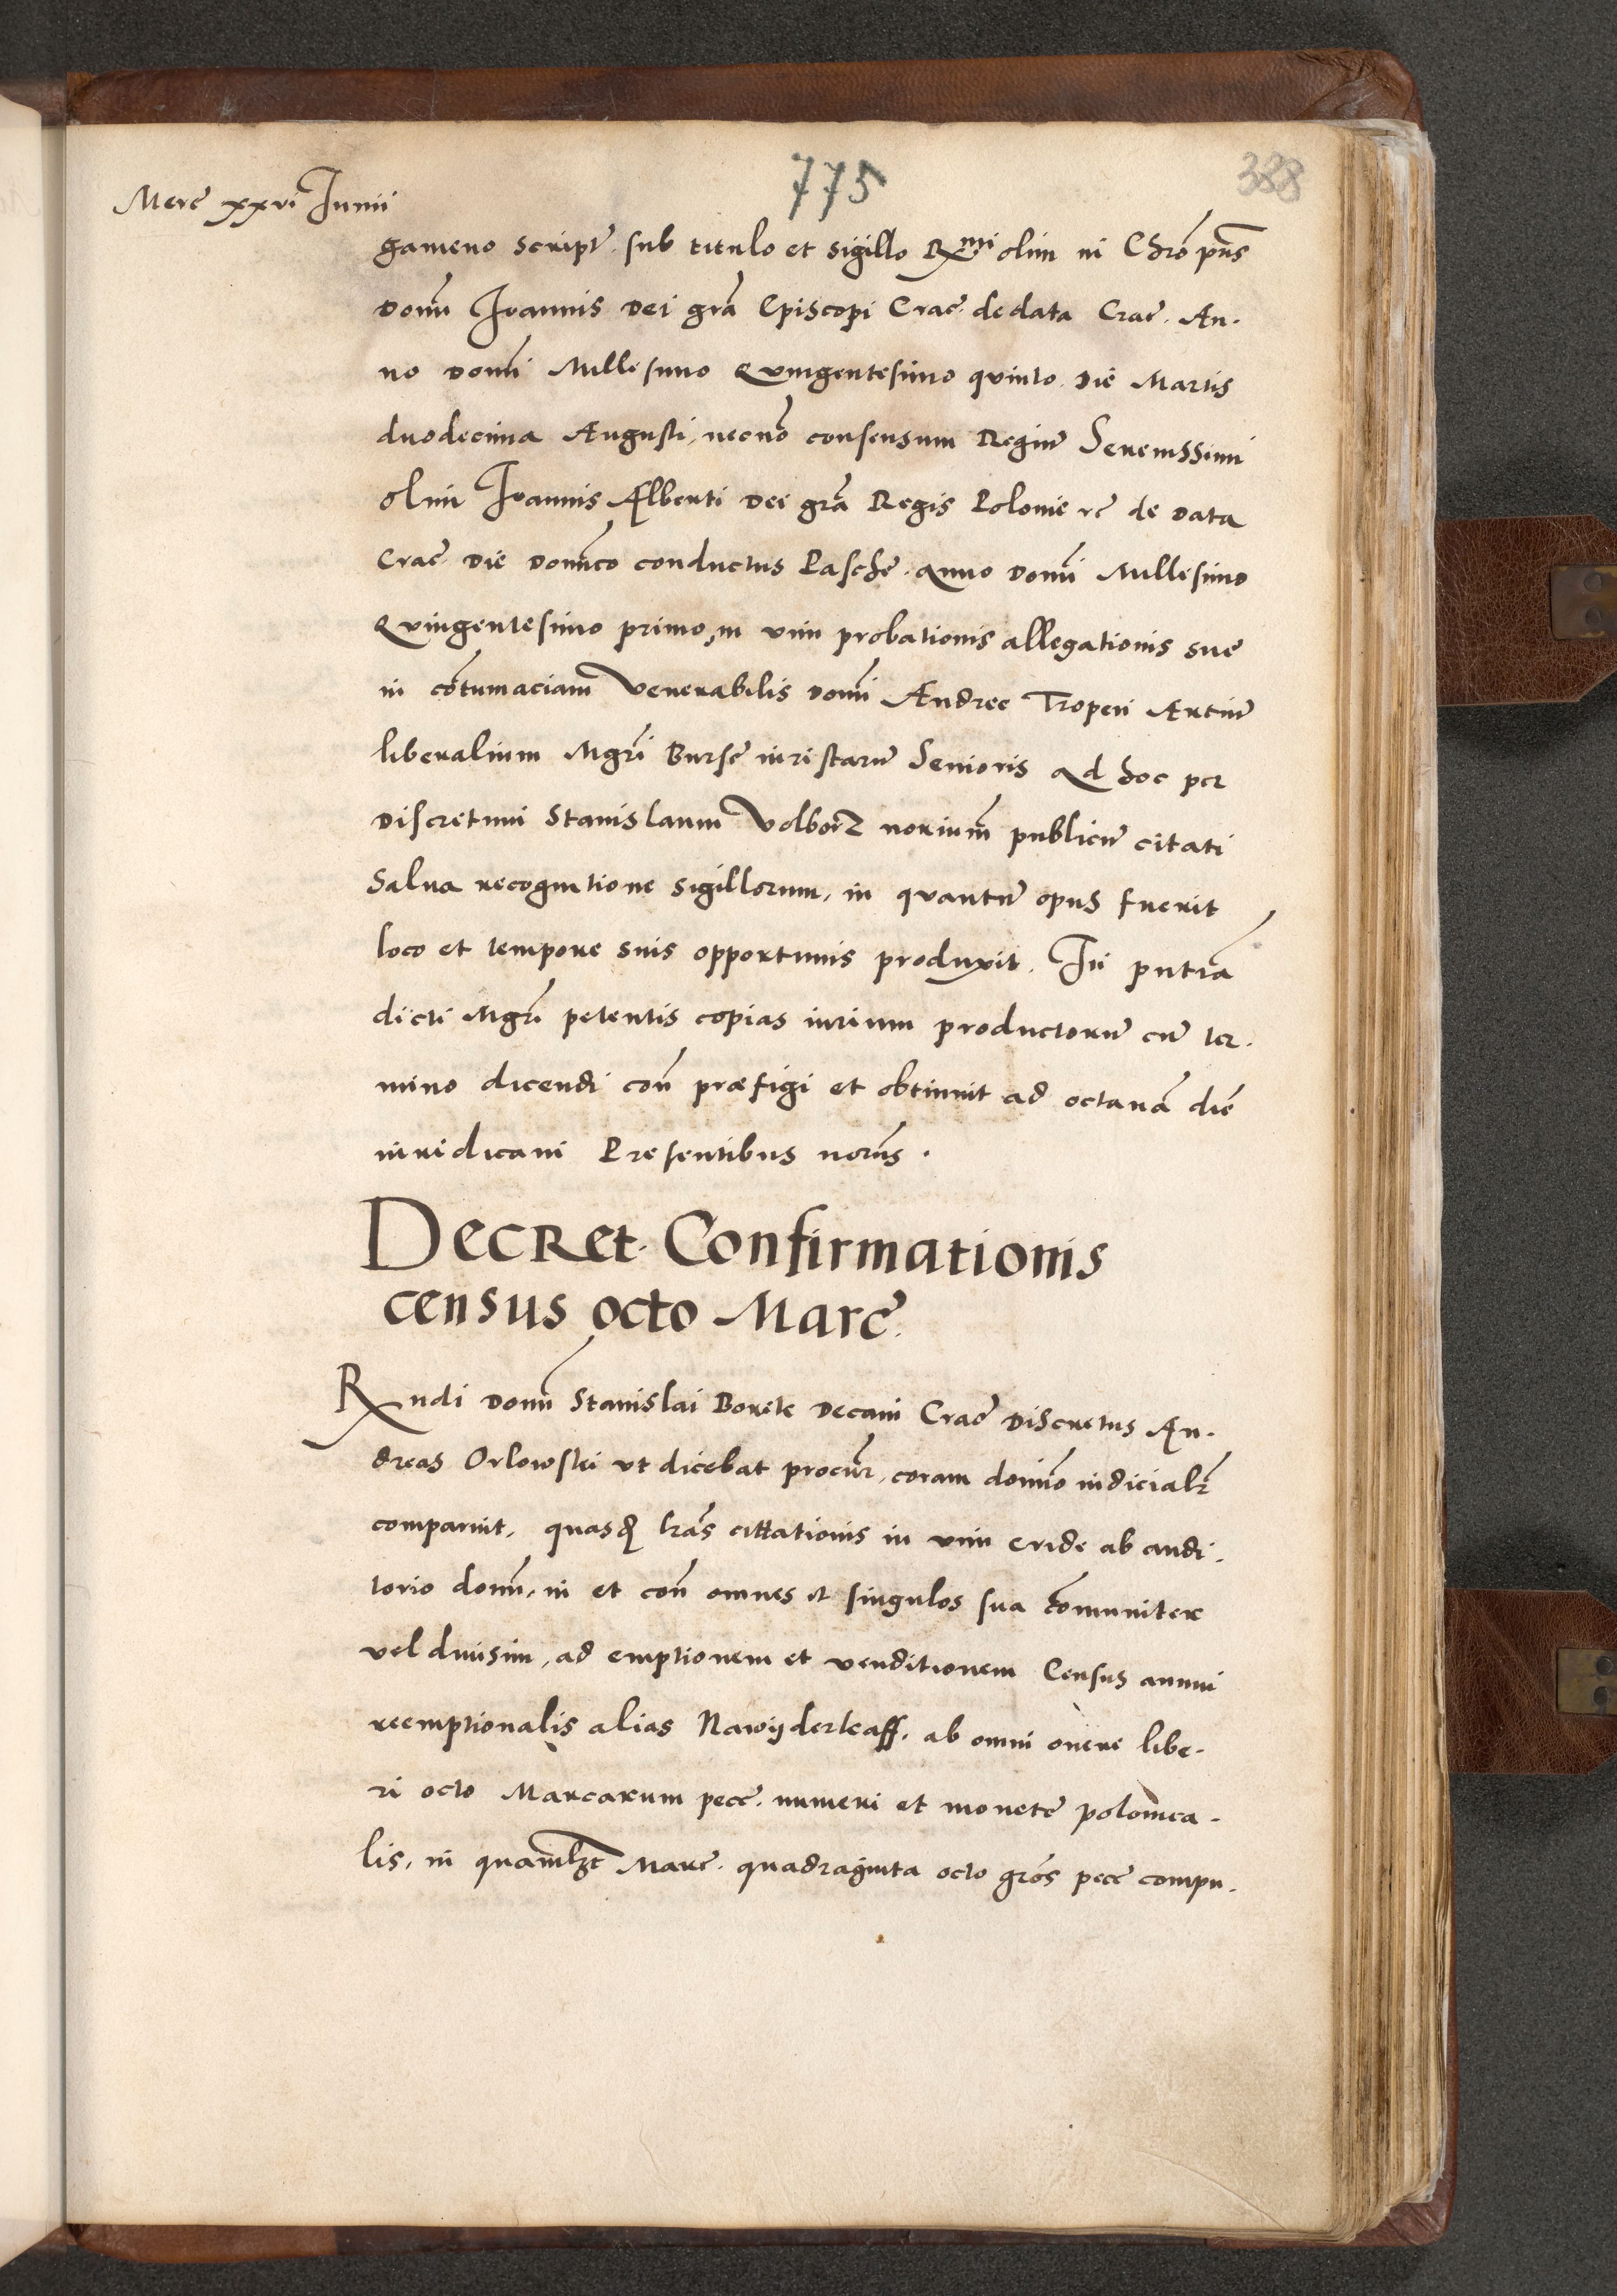 775
388
Merc̄ xxvi Junii
gameno script̄. sub titulo et sigillo Rx̄mi olim in Chr̄o pr̄is
Domī Joannis Dei gr̄a Episcopi Crac̄. de data Crac̄. An.
no Domī Millesimo Quingentesimo quinto. Die Martis
duodecima Augusti, necnō consensum Regiū Serenissimi
olim Joannis Alberti Dei gr̄a Regis Polonie rc̄ de Data
Crac̄. Die Domīco conductus Pasche. anno Domī Millesimo
Quingentesimo primo, in vim probationis allegationis sue
in cōtumaciam Venerabilis Domī Andree Tropeii Artiū
liberalium Mgr̄i Burse iuristarū Senioris ad hoc per
Discretum Stanislaum Volborz norium̄ publicū citati
Salua recognitione sigillorum, in quantū opus fuerit
loco et tempore suis opportunis produxit. In pn̄tia
dicti Mgr̄i petentis copias iurium productorū cū ter.
mino dicendi con̄ præfigi et obtinuit ad octauā diē
iuridicam Presentibus norīis.
Decret. Confirmationis
census octo Marc̄.
Rx̄ndi Domī Stanislai Borek Decani Crac̄ Discretus An.
dreas Orlowski vt dicebat procūr, coram domīo iudicialr̄
comparuit, quasdā lr̄as cittationis in vim cride ab audi.
torio domī, in et con̄ omnes et singulos sua cōmuniter
vel diuisim, ad emptionem et venditionem Census annui
reemptionalis alias Nawijderkaff. ab omni onere libe.
ri octo Marcarum pecc̄. numeri et monete polonica.
lis, in quamlzt̄ Marc̄. quadraginta octo gr̄os pecc̄ compu.